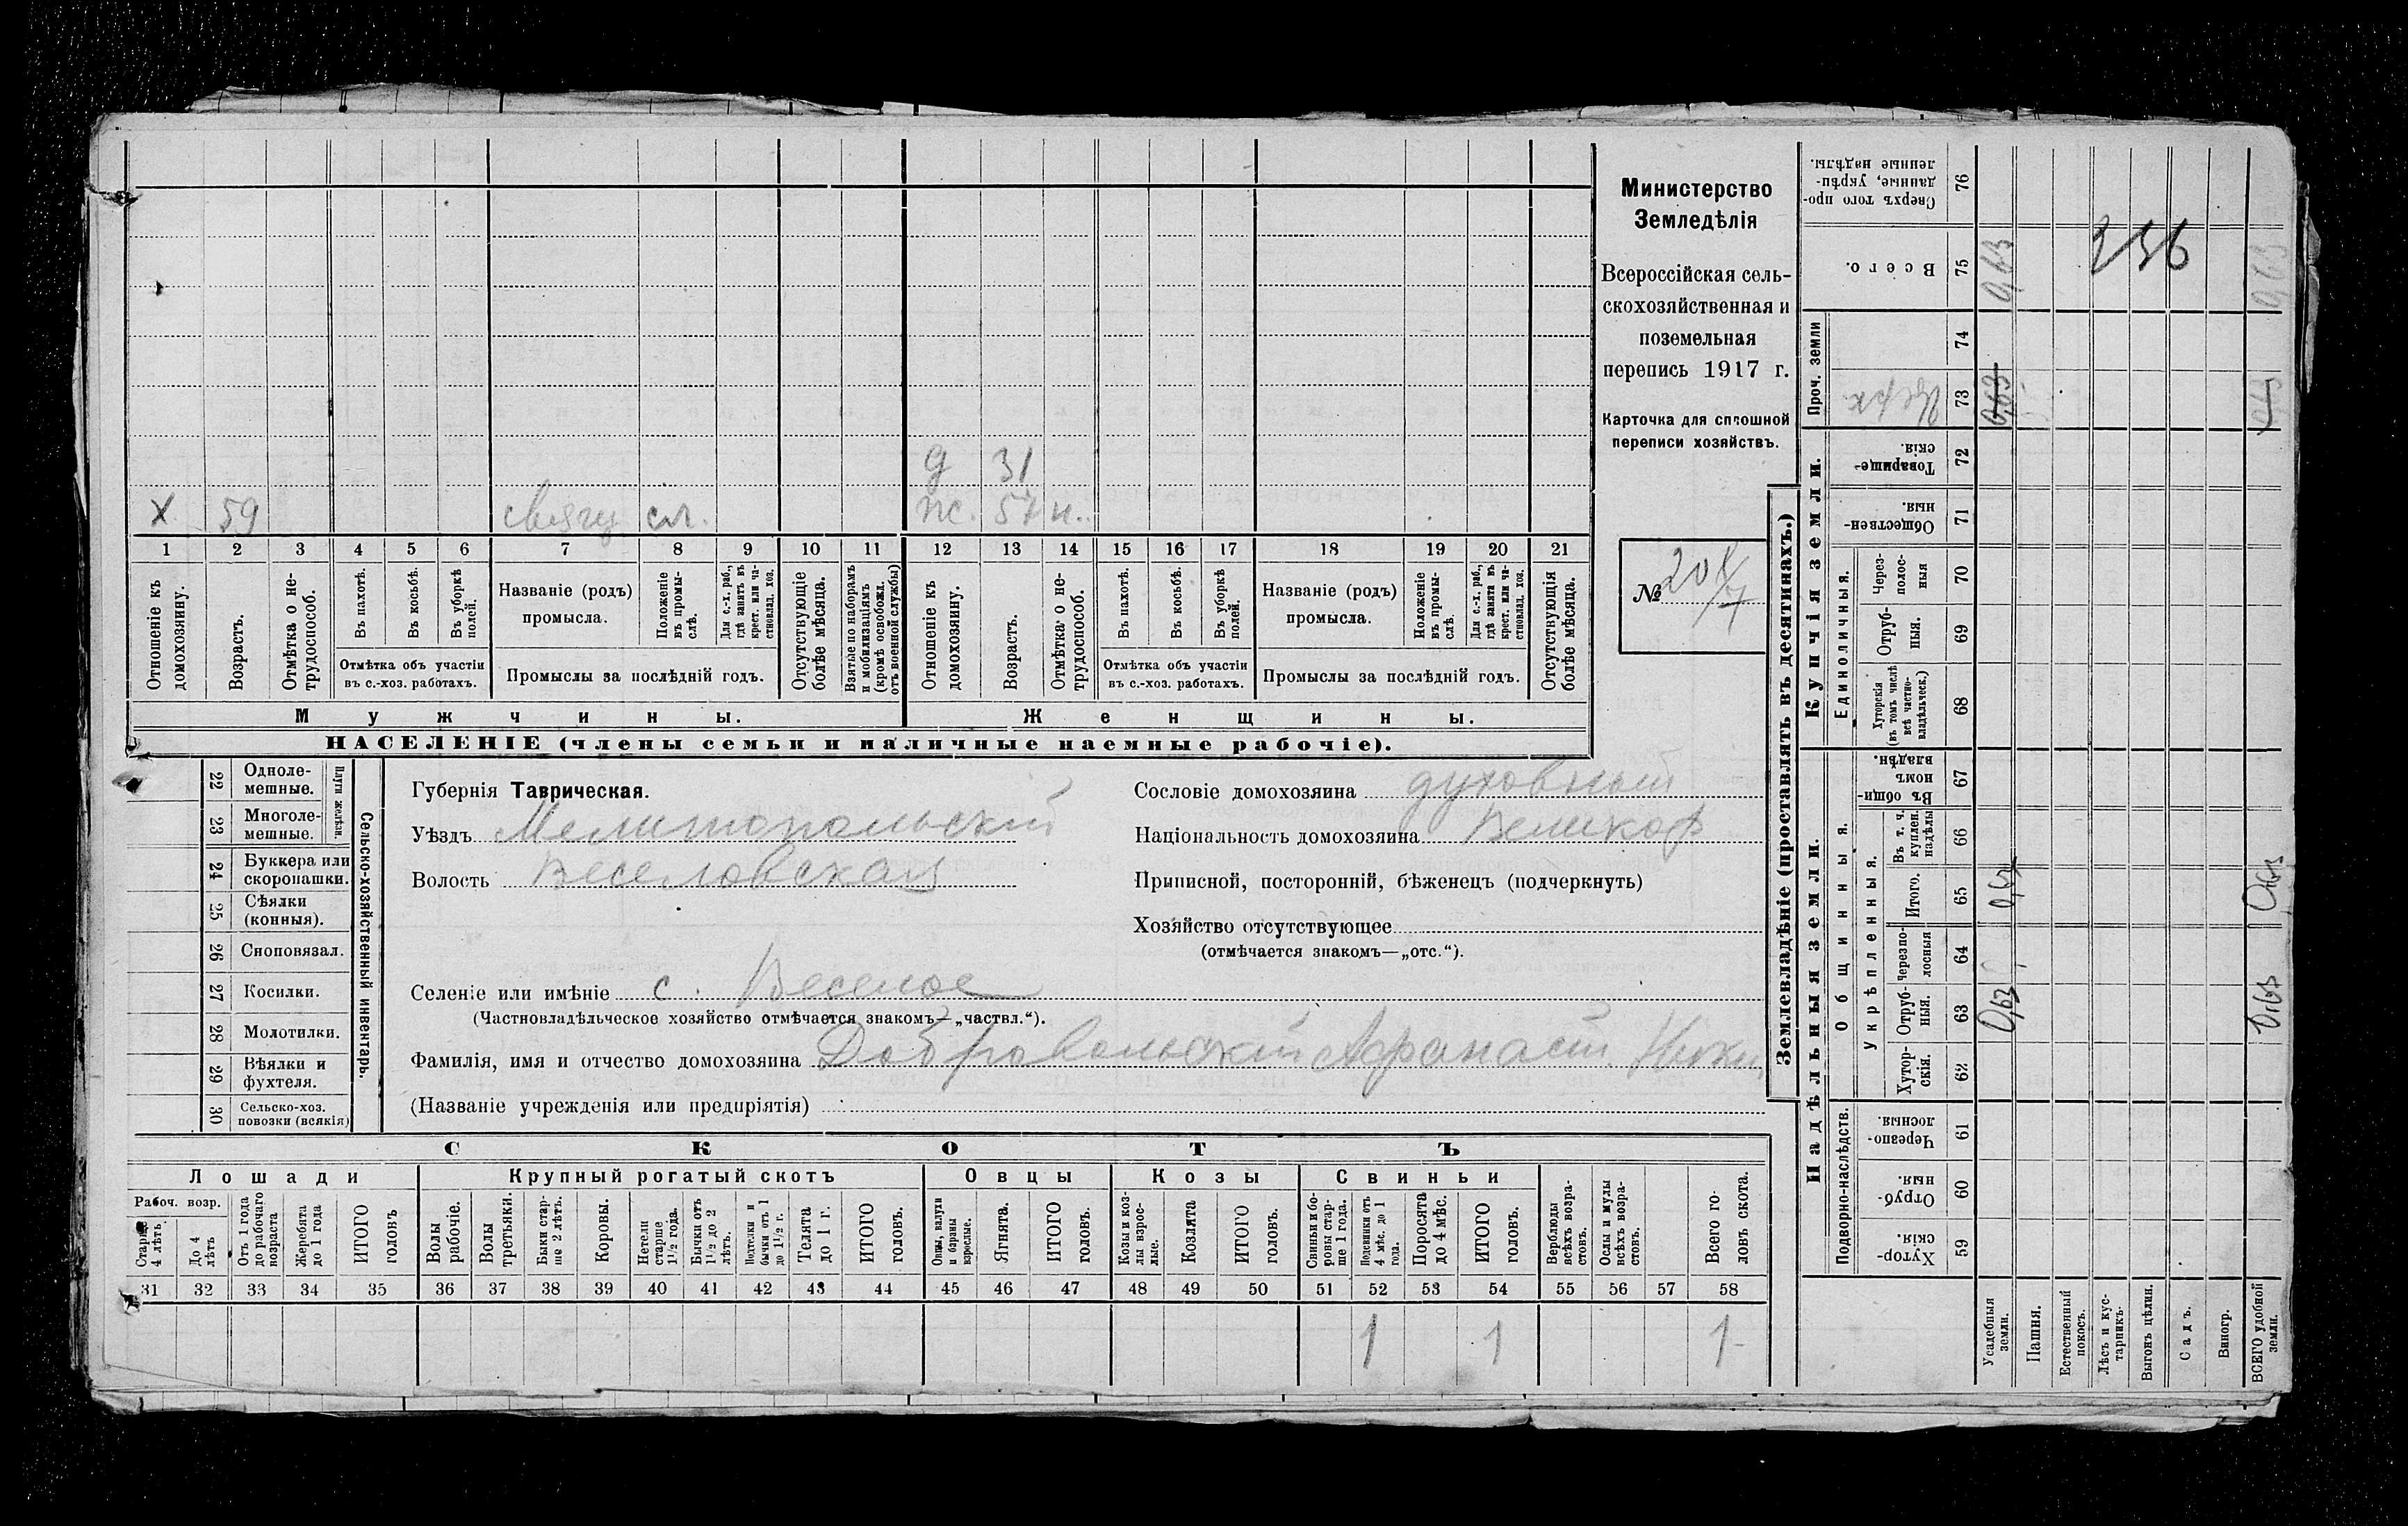 Министерство
Земледѣлія
Всероссійская сель-
скохозяйственная и
поземельная
перепись 1917 г.
Карточка для сплошной
переписи хозяйствъ.
№ 20
д 31
х 59 свящ сл. ж. 57 н.
1 2 3 4 5 6 7 8 9 10 11 12 13 14 15 16 17 18 19 20 21
Отношеніе къ домохозяину.
Возрастъ.
Отмѣтка о не-трудоспособ.
Въ пахотѣ.
Въ косьбѣ.
Въ уборкѣ полей.
Отмѣтка объ участіи
въ с.-хоз. работахъ.
Названіе (родъ)
промысла.
Положеніе въ промы-слѣ.
Для с.-х. раб., гдѣ занятъ въ крест. или ча-стновлад. хоз.
Промыслы за послѣдній годъ.
Отсутствующіе болѣе мѣсяца.
Взятые по наборамъ и мобилизаціямъ (кромѣ освобожд. отъ военной службы)
Отношеніе къ домохозяину.
Возрастъ.
Отмѣтка о не-трудоспособ.
Въ пахотѣ.
Въ косьбѣ.
Въ уборкѣ полей.
Отмѣтка объ участіи
въ с.-хоз. работахъ.
Названіе (родъ)
промысла.
Положеніе въ промы-слѣ.
Для с.-х. раб., гдѣ занята въ крест. или ча-стновлад. хоз.
Промыслы за послѣдній годъ.
Отсутствующія болѣе мѣсяца.
Мужчины.
Женщины.
НАСЕЛЕНІЕ (члены семьи и наличные наемные рабочіе).
Сельско-хозяйственный инвентарь.
22 Одноле-мешные.
23 Многоле-мешные.
24 Буккера или скоропашки.
25 Сѣялки (конныя).
26 Сноповязал.
27 Косилки.
28 Молотилки.
29 Вѣялки и фухтеля.
30 Сельско-хоз. повозки (всякія)
Губернія Таврическая.
Уѣздъ Мелитопольскій
Волость Веселовская
Селеніе или имѣніе с. Веселое
(Частновладѣльческое хозяйство отмѣчается знакомъ—„частвл.“).
Фамилія, имя и отчество домохозяина Добровольскій Афанасій Ники
(Названіе учрежденія или предпріятія)
Сословіе домохозяина духовный
Національность домохозяина Великор
Приписной, посторонній, бѣженецъ (подчеркнуть)
Хозяйство отсутствующее
(отмѣчается знакомъ—„отс.“).
СКОТЪ
Лошади
Крупный рогатый скотъ
Овцы
Козы
Свиньи
Рабоч. возр.
Старше 4 лѣтъ
До 4 лѣтъ
Отъ 1 года до рабочаго возраста
Жеребята до 1 года
ИТОГО головъ
Волы рабочіе.
Волы третьяки.
Быки стар-ше 2 лѣтъ.
Коровы.
Нетели старше 1½ года.
Бычки отъ 1½ до 2 лѣтъ.
Подтелки и бычки отъ 1 до 1½ г.
Телята до 1 г.
ИТОГО головъ.
Овцы, валухи и бараны взрослые.
Ягнята.
ИТОГО головъ.
Козы и коз-лы взрос-лые.
Козлята
ИТОГО головъ.
Свиньи и бо-ровы стар-ше 1 года.
Подсвинки отъ 4 мѣс. до 1 года.
Поросята до 4 мѣс.
ИТОГО головъ.
Верблюды всѣхъ возра-стовъ.
Ослы и мулы всѣхъ возра-стовъ.
Всего го-ловъ скота.
31 32 33 34 35 36 37 38 39 40 41 42 43 44 45 46 47 48 49 50 51 52 53 54 55 56 57 58
1 1 1
Землевладѣніе (проставлять въ десятинахъ.)
Купчія земли.
Надѣльныя земли.
Проч. земли
Единоличныя.
Общинныя.
Укрѣпленныя.
Подворно-наслѣдств.
Сверхъ того про-данные, укрѣп-ленные надѣлы. 76
Всего. 75
74
Церк 73
Товарище-скія 72
Обществен-ныя. 71
Через-полос-ныя 70
Отруб-ныя. 69
Хуторскія (въ томъ числѣ всѣ частно-владѣльческ.) 68
Въ общи-номъ владѣн. 67
Въ т. ч. куплен. надѣлы 66
Итого. 65
Черезпо-лосныя 64
Отруб-ныя. 63
Хутор-скія. 62
Черезпо-лосныя. 61
Отруб-ныя. 60
Хутор-скія. 59
Усадебныя земли.
Пашня.
Естественный покосъ.
Лѣсъ и кус-тарникъ.
Выгонъ цѣлин.
Садъ.
Виногр.
ВСЕГО удобной земли.
0,63
0,63
236
0,63
0,63
0,63
0,63